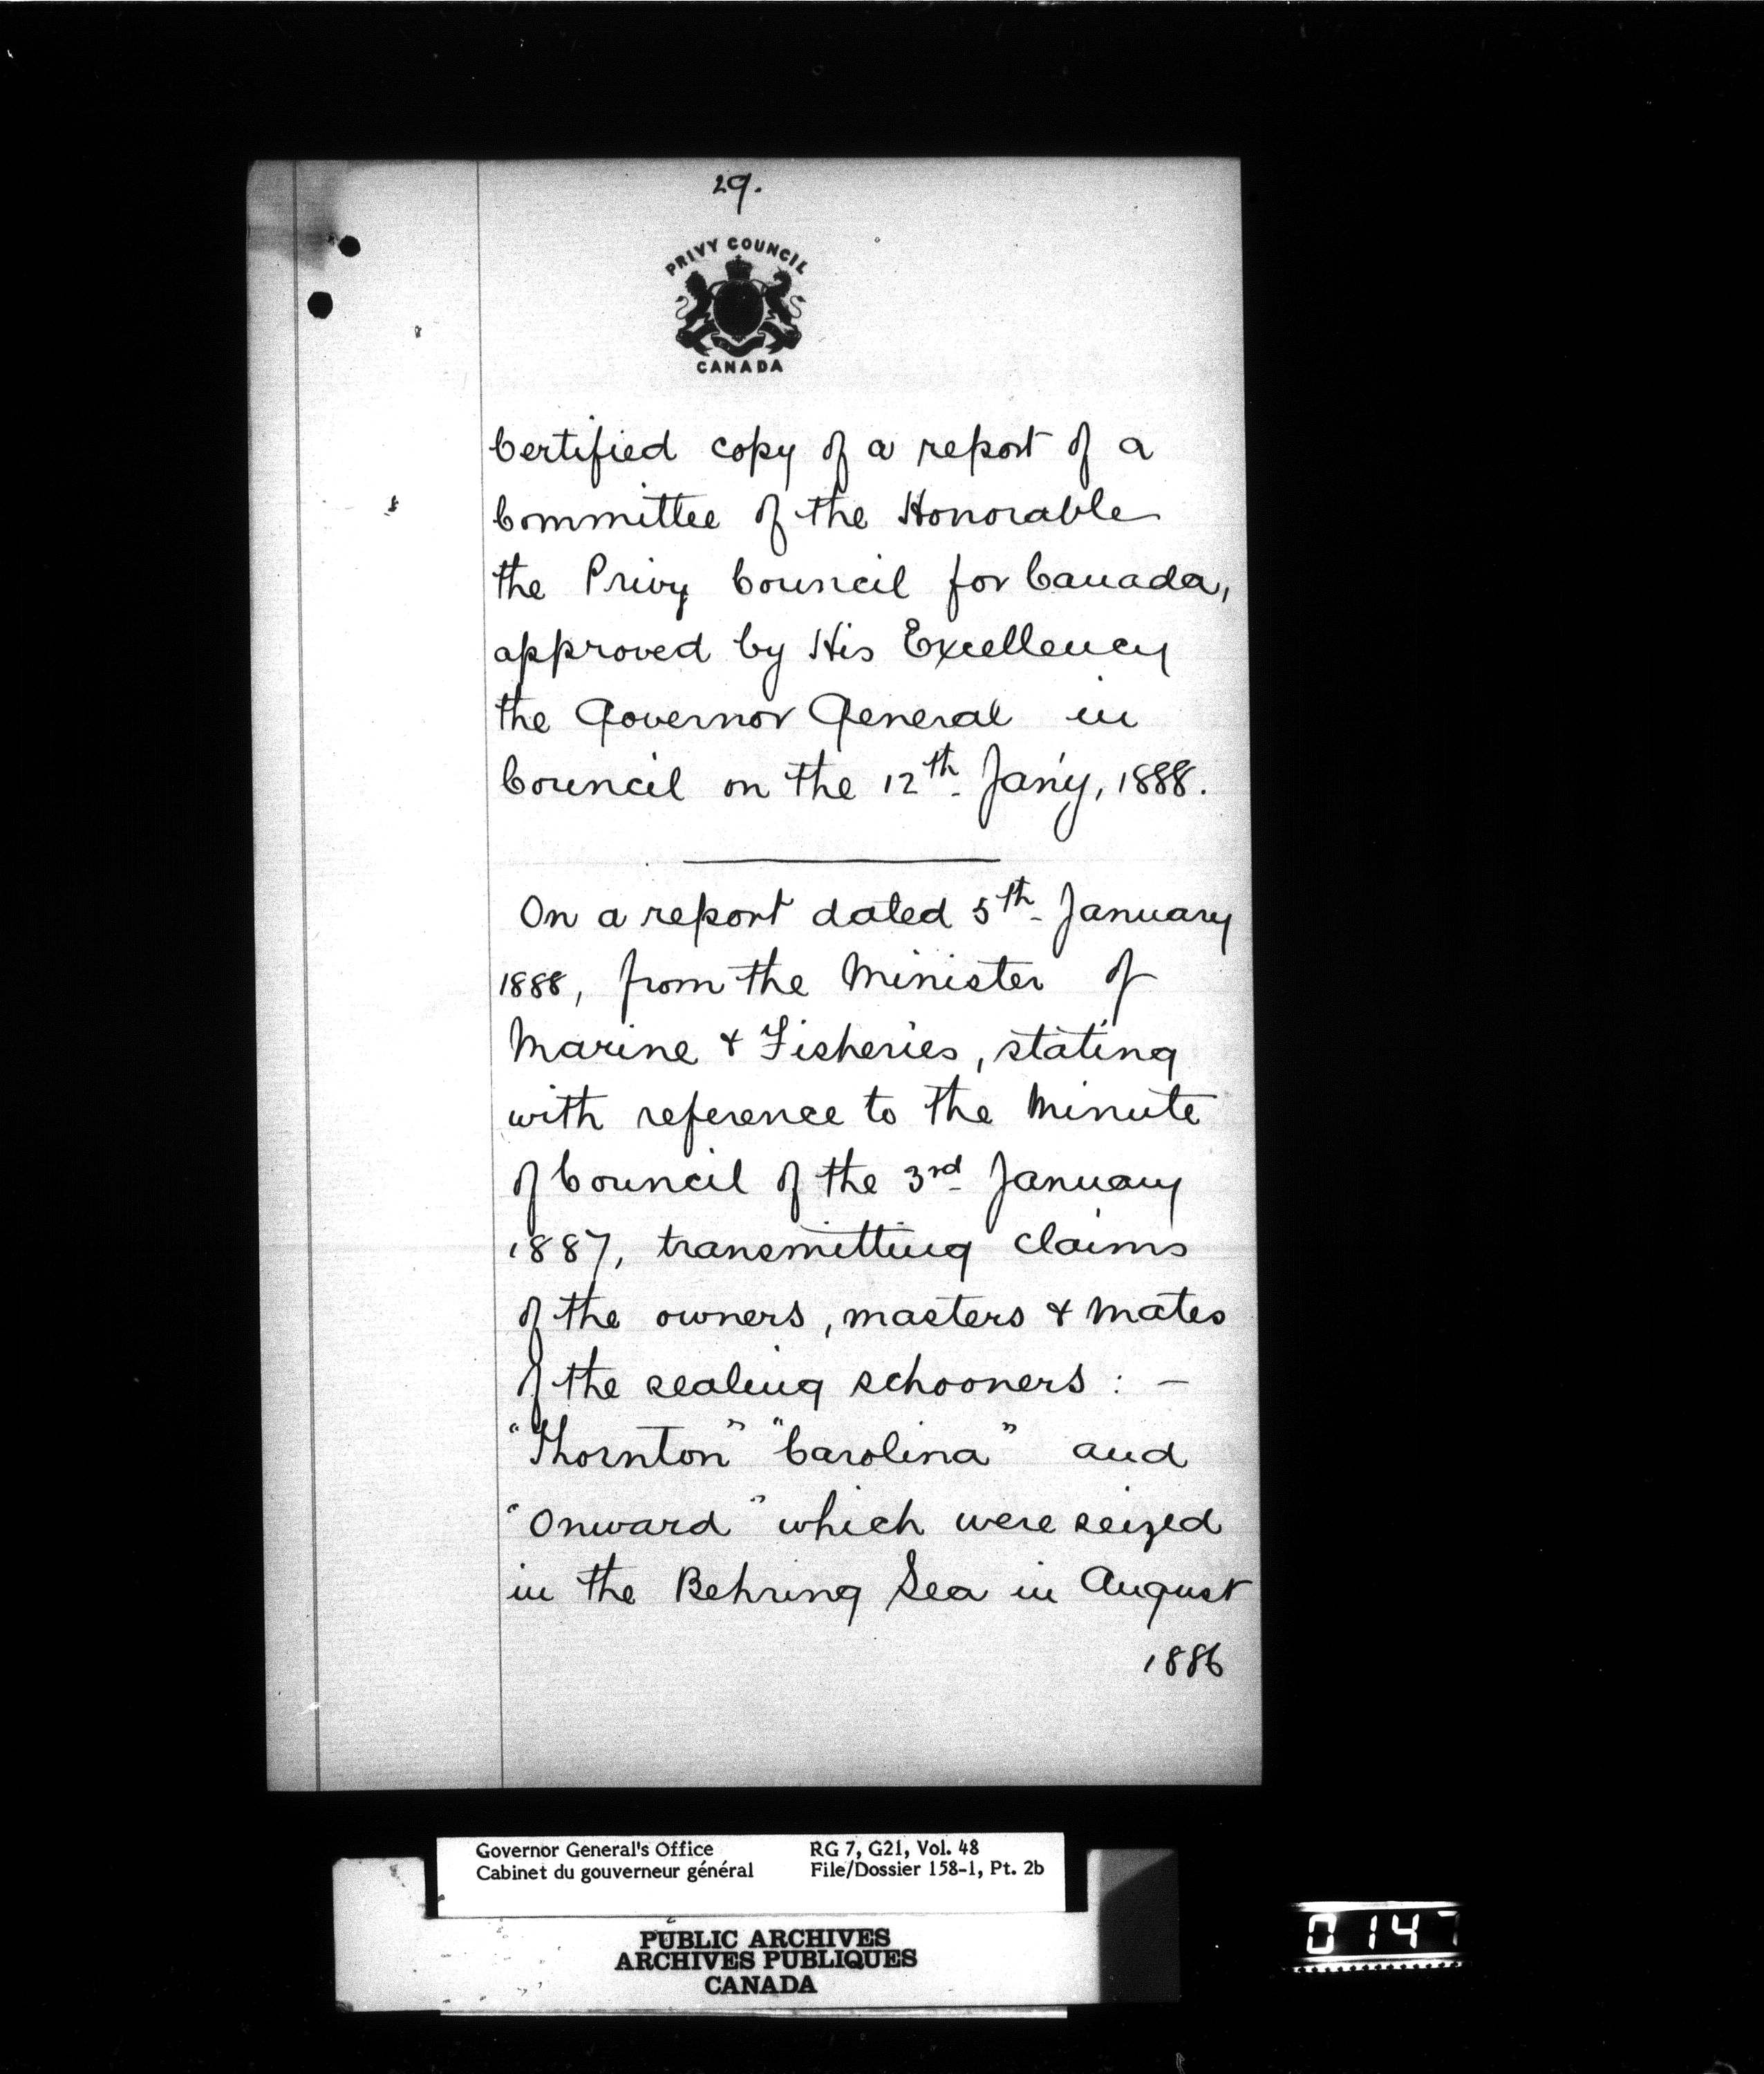 29.
PRIVY COUNCIL
CANADA
Certified copy of a report of a
Committee of the Honorable
the Privy Council for Canada,
approved by His Excellency
the Governor General in
Council on the 12th Jan'y, 1888.
On a report dated 5th January
1888, from the Minister of
Marine & Fisheries, stating
with reference to the Minute
of Council of the 3rd January
1887, transmitting claims
of the owners, masters & mates
of the sealing schooners: -
"Thornton" "Carolina" and
"Onward" which were seized
in the Behring Sea in August
1886
Governor General's Office RG 7, G21, Vol. 48
Cabinet du gouverneur général File/Dossier 158-1, Pt. 2b
PUBLIC ARCHIVES
ARCHIVES PUBLIQUES
CANADA
0147